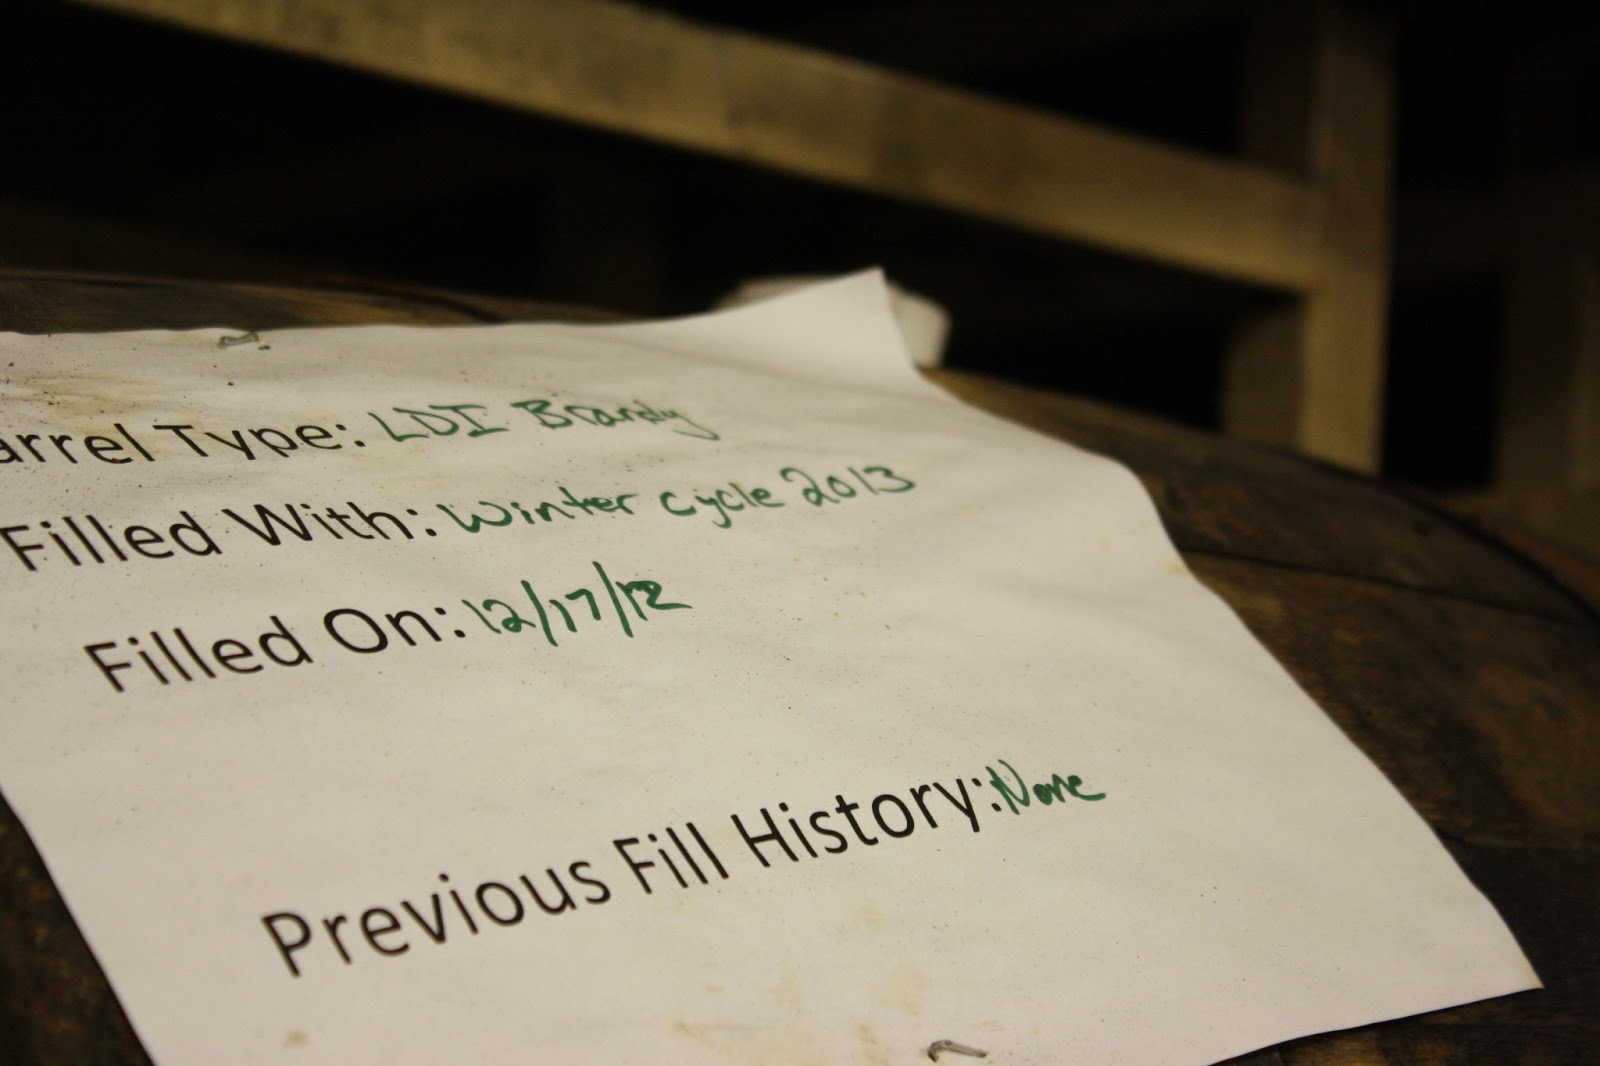 arrel Type: LDI Brandy
Filled With: Winter Cycle 2013
Filled On: 12/17/12
Previous Fill History: None